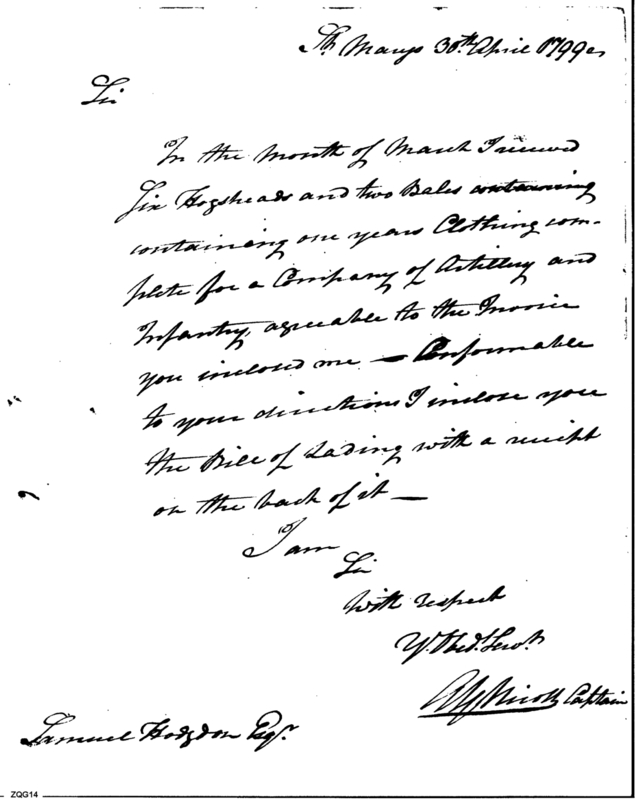 St. Marys 30th April 1799
Sir
In the Month of March I received
Six Hogsheads and two Bales containing
containing one years Clothing com-
plete for a Company of Artillery and
Infantry, agreeable to the Invoice
you inclosed me — Conformable
to your directions I inclose you
the Bill of Lading with a receipt
on the back of it —
I am
Sir
with respect
Yr. Obed. Servt.
Captain
Samuel Hodgdon Esqr.
ZQG14